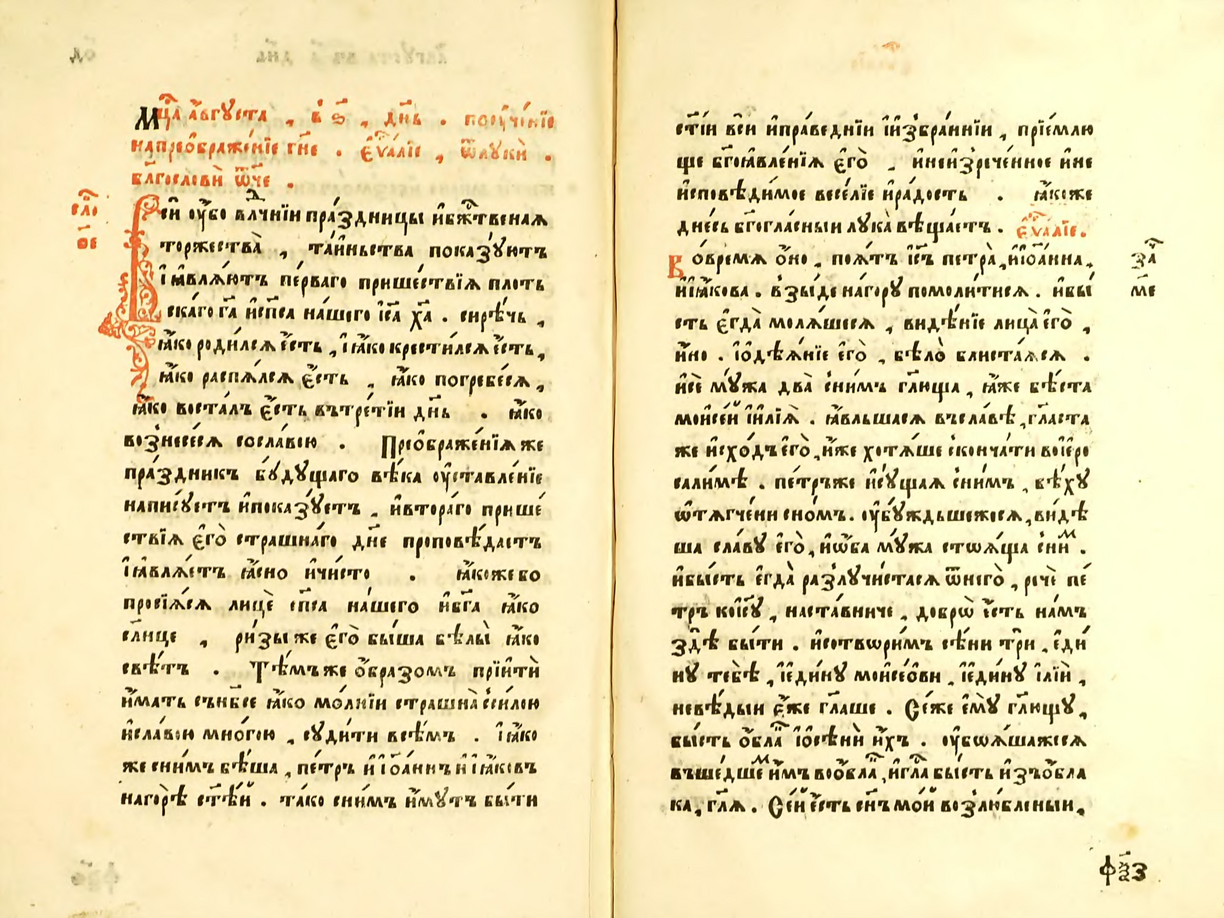 Мцⷭ҇а а҆́вгꙋста , в҆ ѕ҃ , дн҃ь . поꙋче́нїе
напреѡбраже́нїе гн҃е . є҆ѵⷢ҇алїе , ѿлꙋкѝ .
бл҃гослови ѿч҃е .
сло
ѳе
Сїи ᲂу҆́бо влⷣчнїи пра́здницы и҆бж҃твеная
торжества̀ , та́иньства показꙋютъ
і҆ꙗ҆вля́ютъ пе́рваго прише́ствїꙗ плоть
ска́го га҃ и҆сп҃са на́шего і҆с҃а х҃а . сирѣ́чь ,
ꙗ҆́ко роди́лсѧ є҆́сть , і҆ꙗ҆́ко крести́лсѧ є҆́сть ,
ꙗ҆́ко распѧ́лсѧ є҆́сть , ꙗ҆́ко погребе́сѧ ,
ꙗ҆́ко воста́лъ є҆́сть вътре́тїи дн҃ь . ꙗ҆́ко
вознесе́сѧ сосла́вою . Преѡбраже́нїꙗ же
пра́здникъ бꙋ́дꙋщаго вѣ́ка ᲂу҆ставле́нїе
написꙋетъ и҆показꙋетъ , и҆втора́го прише́
ствїꙗ є҆гѡ̀ стра́шна́го дн҃е проповѣ́даетъ
і҆ꙗ҆влѧ́етъ ꙗ҆́сно и҆чи́сто . ꙗ҆́коже бо
просїѧ́сѧ лицѐ сп҃са на́шего и҆бг҃а ꙗ҆́ко
сл҃нце , ри́зы же є҆го̀ бы́ша бѣлы̀ ꙗ҆́ко
свѣ́тъ . Тѣ́мъже ѻ҆́бразомъ прїитѝ
и҆́мать съ нб҃се ꙗ҆́ко мо́лнїи страшна̀ сси́лою
и҆сла́вою мно́гою , сꙋди́ти всѣ́мъ . І҆ꙗ҆́ко
же сни́мъ бѣ́ша , пе́тръ и҆ і҆ѡа́ннъ и҆ і҆ꙗ́ковъ
нагорѣ̀ ст҃ѣ́й . та́ко сни́мъ и҆́мꙋтъ бы́ти
ст҃і́и вси̑ и҆пра́веднїи і҆и҆збра́ннїи , прїе́млю
ще бг҃оꙗвле́нїꙗ є҆го̀ , и҆неи҆зрече́нное и҆не
и҆сповѣ́димое весе́лїе и҆ра́дость . ꙗ҆́коже
дне́сь бг҃огла́сныи лꙋка̀ вѣща́етъ . є҆ѵⷢ҇а́лїе .
Во́времѧ ѻ҆́но , поѧ́тъ і҆с҃ъ петра̀ , и҆і҆ѡа́нна ,
и҆і҆ꙗ́кова . взы́де нагорꙋ̀ помоли́тисѧ . и҆бы́
сть є҆гда̀ молѧ́шесѧ , видѣ́нїе лица̀ є҆го̀ ,
и҆́но . і҆ѡдѣѧ́нїе є҆го̀ , бѣло̀ блиста́ѧсѧ .
и҆сѐ мꙋ́жа два̀ сни́мъ гл҃юща , ꙗ҆́же бѣ́ста
моисе́й і҆илїѧ̀ . ꙗ҆́вльшасѧ въсла́вѣ , гл҃аста
же и҆схо́дъ є҆го̀ , и҆́же хотѧ́ше сконча́ти во і҆еро
сали́мѣ . пе́тръже и҆сꙋ́щаꙗ сни́мъ , бѣ́хꙋ
ѡ҆тѧгче́ни сно́мъ . ᲂу҆бꙋ́ждьшежесѧ , ви́дѣ
ша сла́вꙋ є҆го̀ , и҆ѻ҆́ба мꙋ́жа стоѧ́ща сниⷨ҇ .
и҆бы́сть є҆гда̀ разлꙋчи́стасѧ ѿнего̀ , рѐче пе́
тръ коі҆с҃ꙋ , наста́вниче , добро̀ є҆́сть на́мъ
здѣ̀ бы́ти . и҆сотвори́мъ сѣ́ни трѝ , є҆ди́
нꙋ тебѣ̀ , і҆еди́нꙋ моисе́ови , і҆еди́нꙋ і҆лїѝ ,
невѣ́дыи є҆́же гл҃аше . Се́же є҆мꙋ̀ гл҃ющꙋ ,
бы́сть ѻ҆́блаⷦ҇ і҆ѡсѣнѝ и҆́хъ . ᲂу҆боѧ́шажесѧ
въше́дшеⷨ҇ и҆́мъ воѻ҆́блаⷦ҇ , и҆гл҃а бы́сть и҆зъѻ҆́бла
ка , гл҃ѧ . Се́й є҆́сть сн҃ъ мо́й возлю́бленыи ,
за
ме
фⷯ҃з